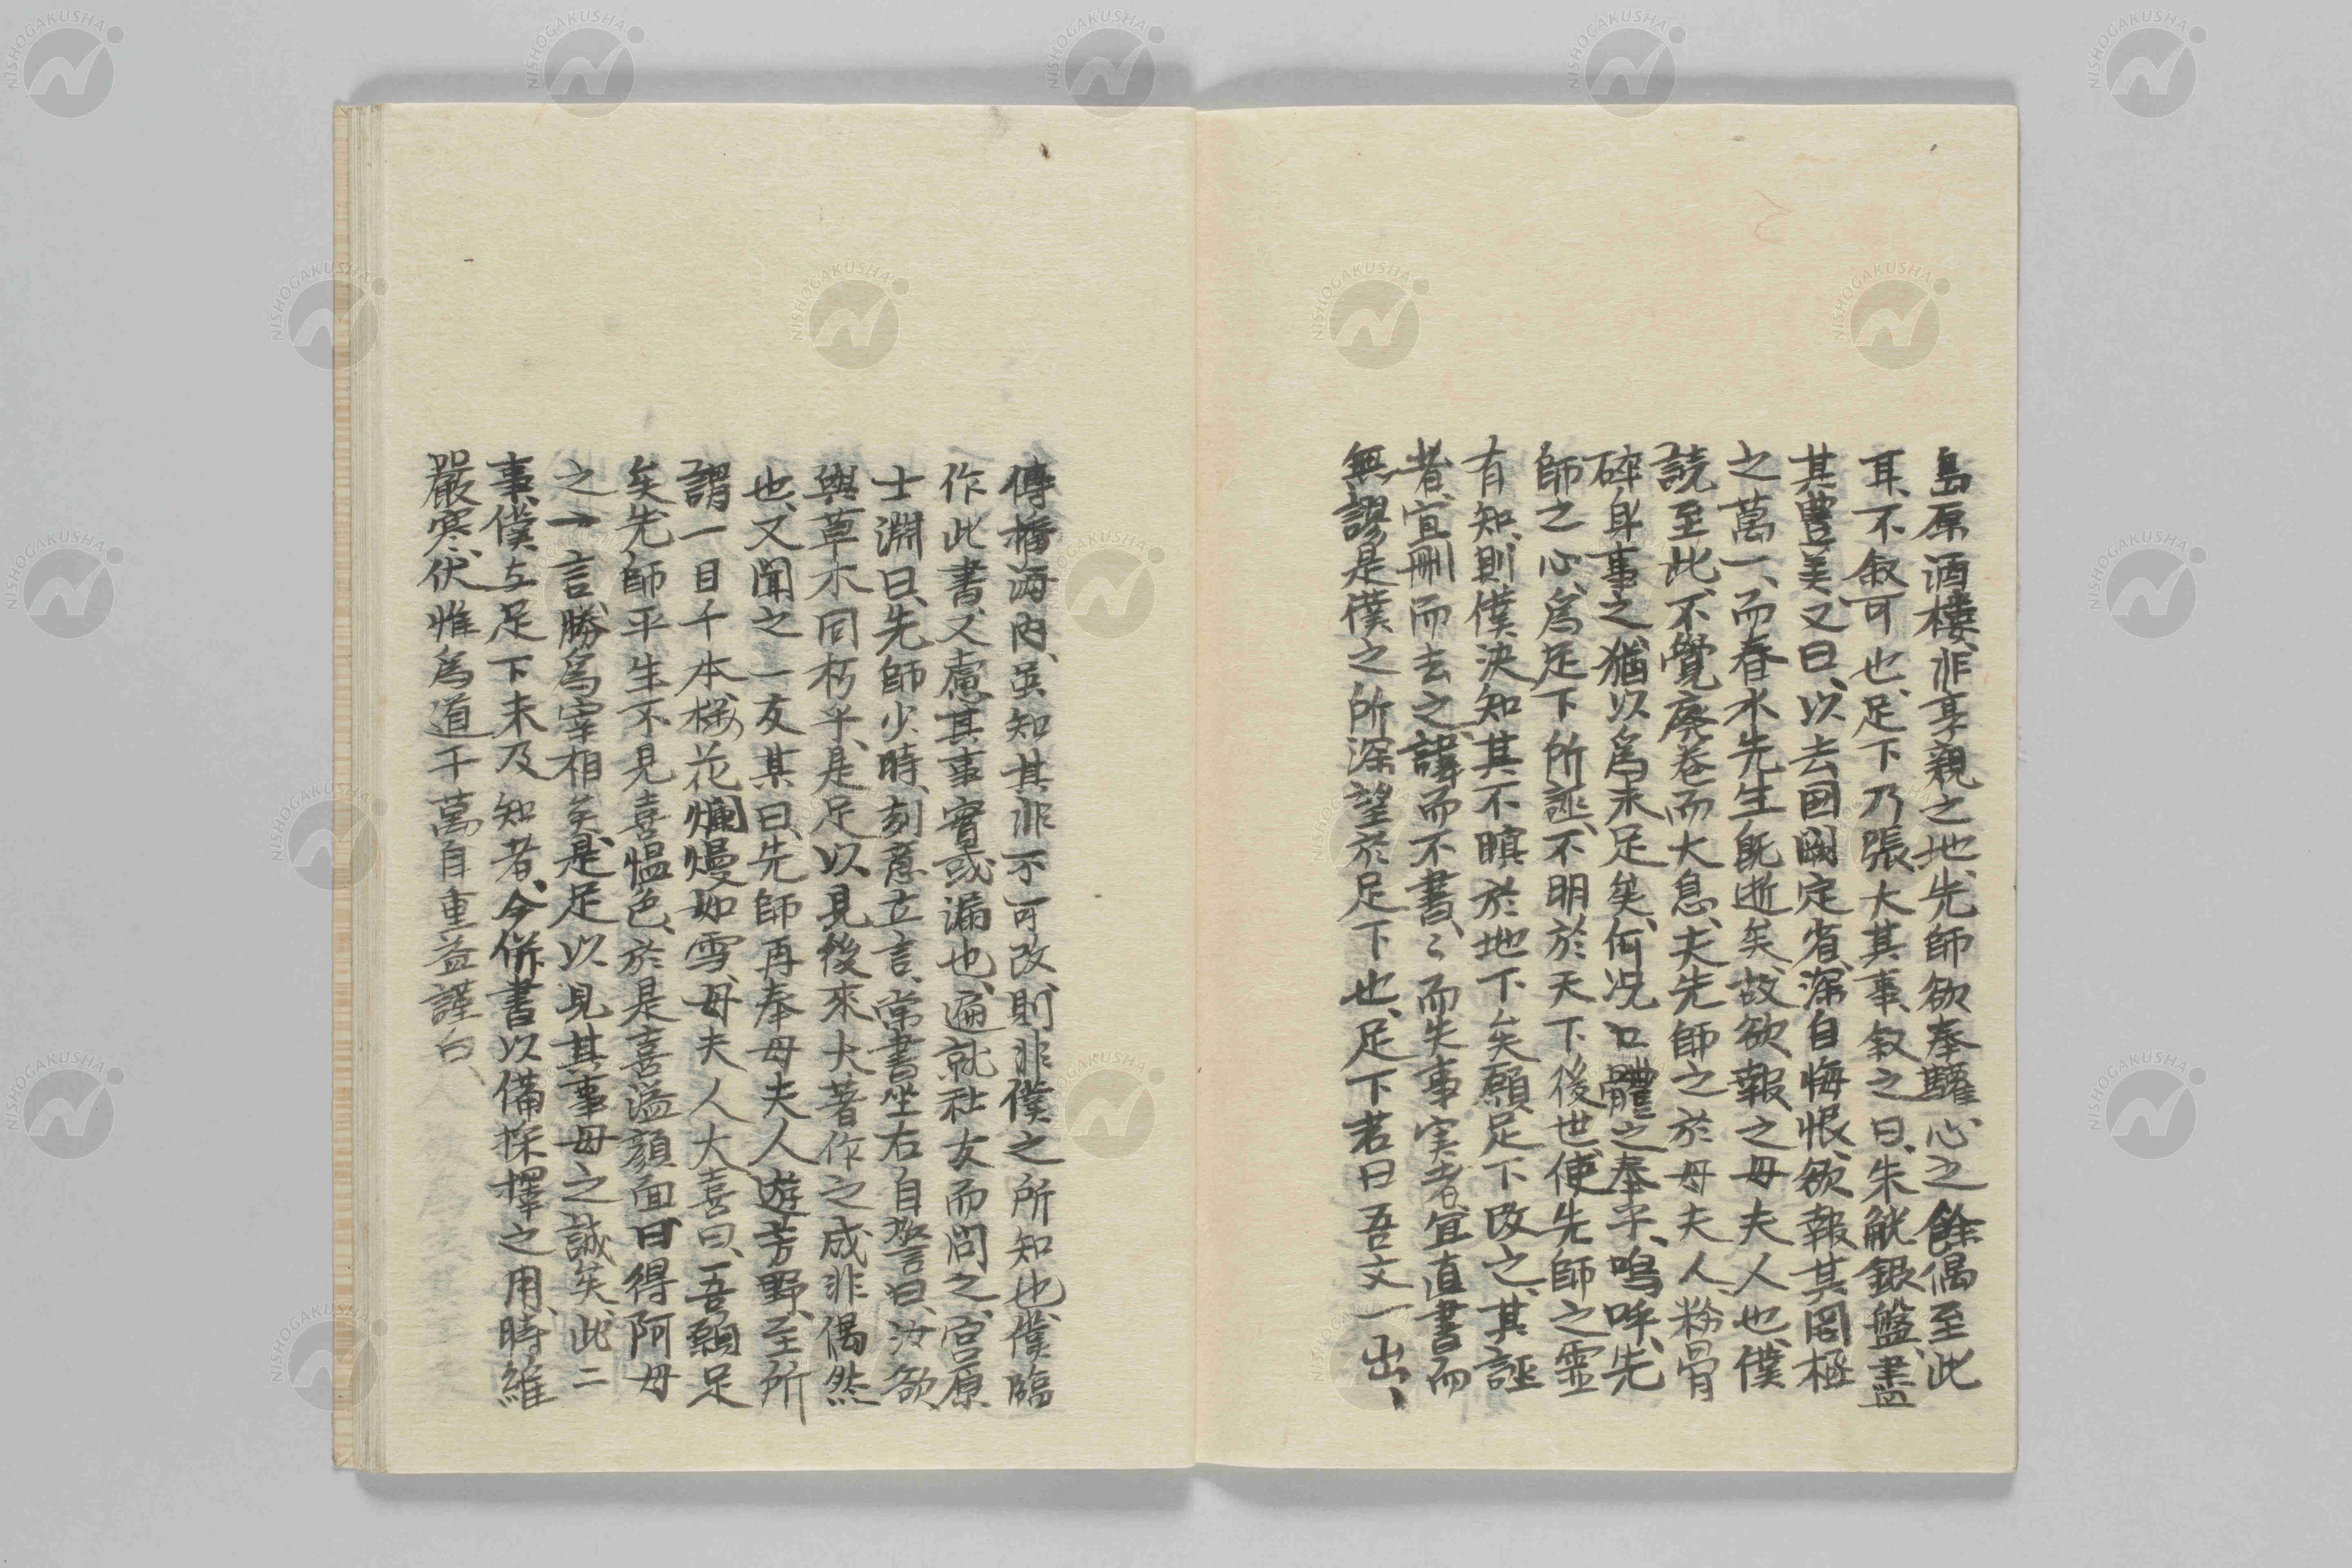 島原酒樓、非享親之地、先師欲奉驩心之餘偶至此
耳、不叙可也、足下乃張大其事、叙之曰、朱觥銀盤、盡
其豊美、又曰、以去国闕定省、深自悔恨、欲報其罔極
之萬一、而春水先生既逝矣、故欲報之母夫人也、僕
読至此、不覺廃巻而大息、夫先師之於母夫人、粉骨
碎身事之、猶以為未足矣、何況口體之奉乎、嗚呼、先
師之心、為足下所誣、不明於天下後世、使先師之霊
有知、則僕決知其不瞑於地下矣、願足下改之、其誣
者、宜刪而去之、諱而不書、〻而失事実者、宜直書而
無謬、是僕之所深望於足下也、足下若曰吾文一出、
傳播海内、虽知其非不可改、則非僕之所知也、僕臨
作此書、又慮其事實或漏也、遍就社友而問之、宮原
士淵曰、先師少時、刻意立言、常書坐右自警曰、汝欲
與草木同朽乎、是足以見後來大著作之成非偶然
也、又聞之一友某曰、先師再奉母夫人遊芳野、至所
謂一目千本、桜花爛熳如雪、母夫人大喜曰、吾願足
矣、先師平生不見喜慍色、於是喜溢顔面曰、得阿母
之一言、勝為宰相矣、是足以見其事母之誠矣、此二
事、僕与足下未及知者、今併書以備採擇之用、時維
嚴寒、伏惟為道千萬自重、益謹白、